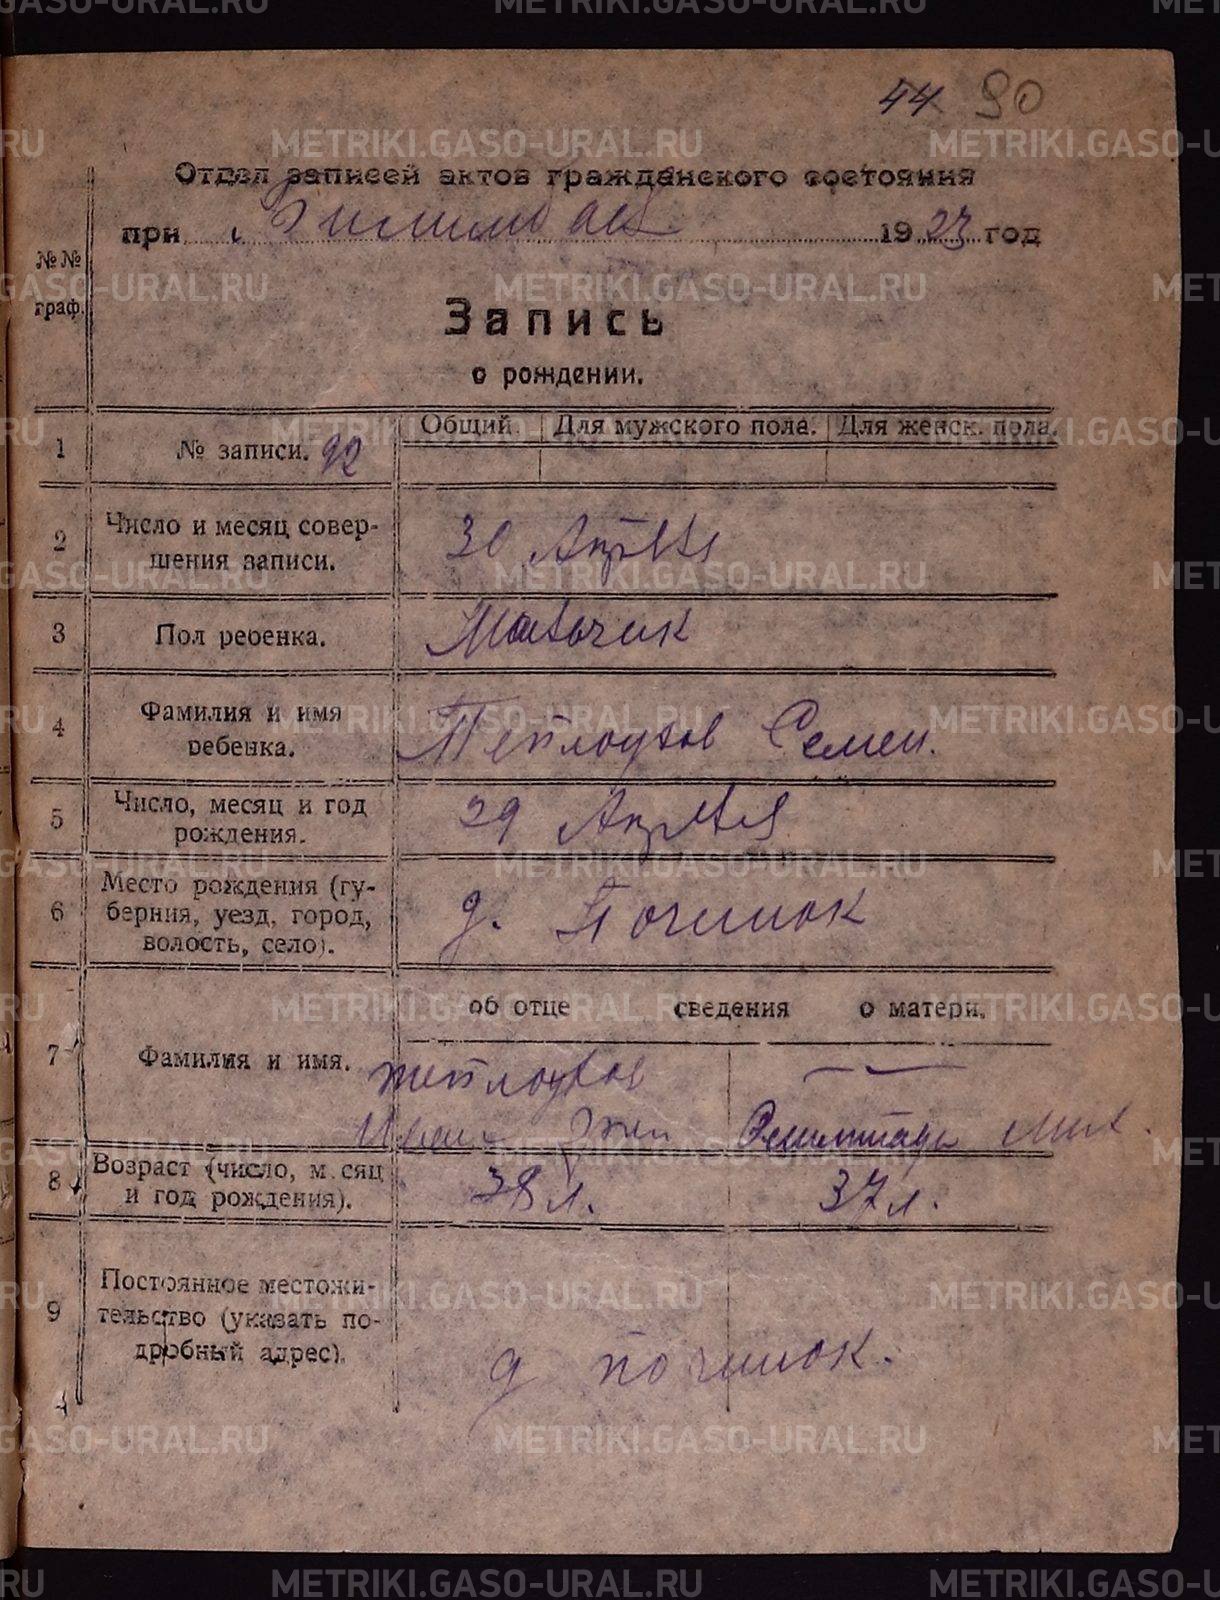 44 90
Отдел записей актов гражданского состояния
при с Билимбай 1923 год
№№
граф.
Запись
о рождении.
1 № записи. 92 Общий. Для мужского пола. Для женск. пола.
2 Число и месяц совер-
шения записи. 30 Апреля
3 Пол ребенка. Мальчик
4 Фамилия и имя
ребенка. Теплоухов Семен.
5 Число, месяц и год
рождения. 29 Апреля
6 Место рождения (гу-
берния, уезд, город,
волость, село). д. Починок
об отце сведения о матери.
7 Фамилия и имя. Теплоухов —
Иван Мих.
8 Возраст (число, м.сяц
и год рождения). 38 л. 37 л.
9 Постоянное местожи-
тельство (указать по-
дробный адрес). д Починок.
METRIKI.GASO-URAL.RU